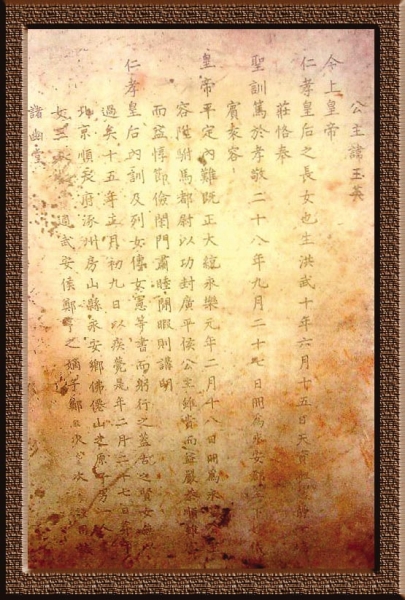 公主諱玉英
今上皇帝
仁孝皇后之長女也生洪武十年六月十五日天資
莊恪奉
聖訓篤於孝敬二十八年九月二十七日冊為永安郡主下
賓袁容
皇帝平定內難既正大統永樂元年二月十八日冊為永
容陞駙馬都尉以功封廣平侯公主貴而益嚴恭順
而益惇節儉閨門肅睦閒暇則講明
仁孝皇后內訓及列女傳女憲等書而躬行之蓋古之賢女無
過矣十五年正月初九日以疾薨是年二月二十七日葬
北京順天府涿州房山縣永安鄉佛僊山之原
女三適武安侯鄭亨之嫡子鄭次
諸幽堂